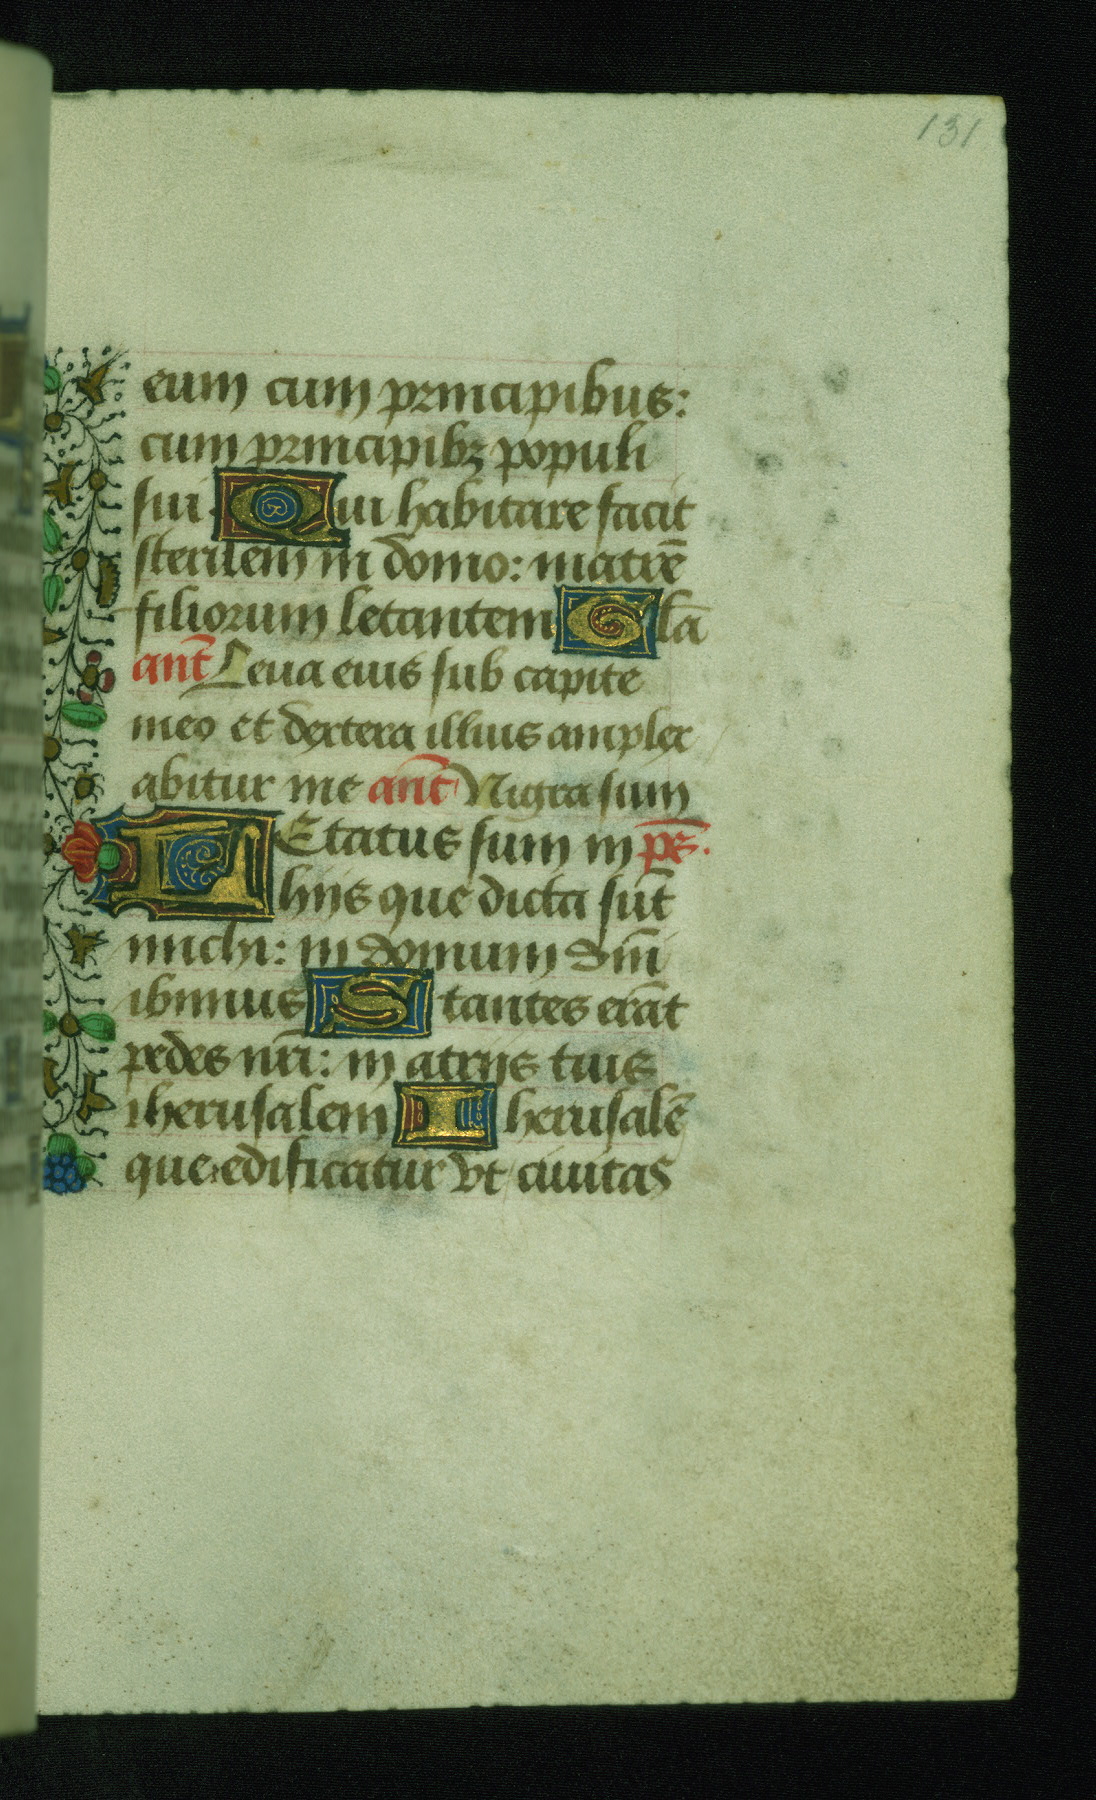 131
eum cum principibus:
cum principibꝫ populi
sui Qui habitare facit
sterilem in domo: matrē
filiorum letantem Gl̄a
ant̄ Leua eius sub capite
meo et dextera illius amplex
abitur me ant̄ Nigra sum
LEtatus sum in ps̄.
hijs que dicta sūt
michi: in domum dn̄i
ibimus Stantes erāt
pedes nr̄i: in atrijs tuis
iherusalem Iherusalē
que edificatur vt ciuitas